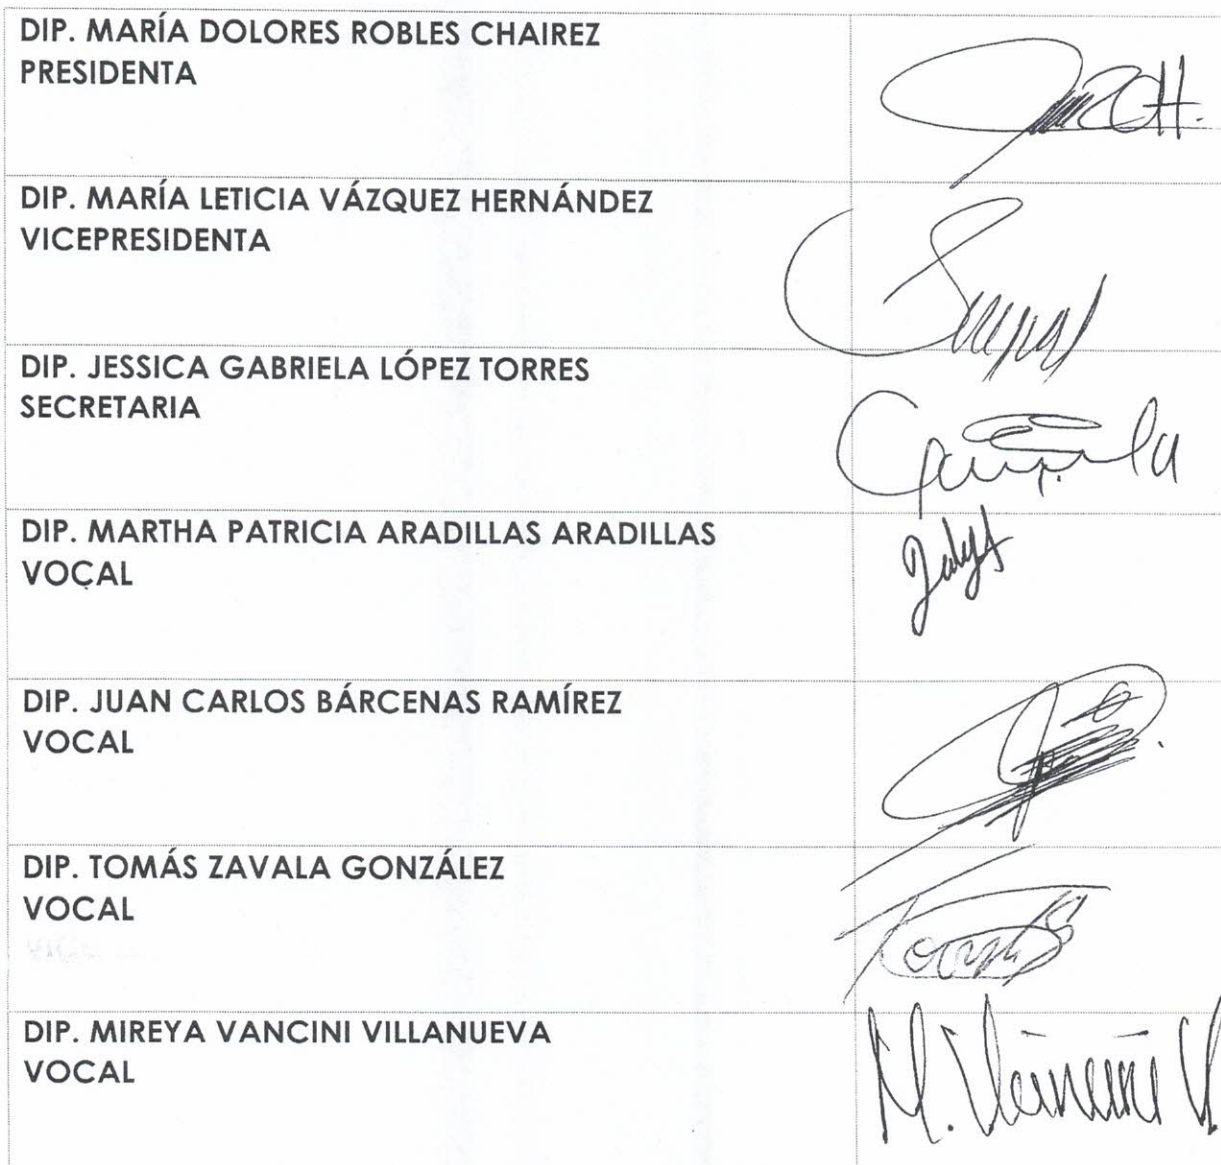 DIP. MARÍA DOLORES ROBLES CHAIREZ
PRESIDENTA
DIP. MARÍA LETICIA VÁZQUEZ HERNÁNDEZ
VICEPRESIDENTA
DIP. JESSICA GABRIELA LÓPEZ TORRES
SECRETARIA
DIP. MARTHA PATRICIA ARADILLAS ARADILLAS
VOCAL
DIP. JUAN CARLOS BÁRCENAS RAMÍREZ
VOCAL
DIP. TOMÁS ZAVALA GONZÁLEZ
VOCAL
DIP. MIREYA VANCINI VILLANUEVA
VOCAL
M. Vancini V.